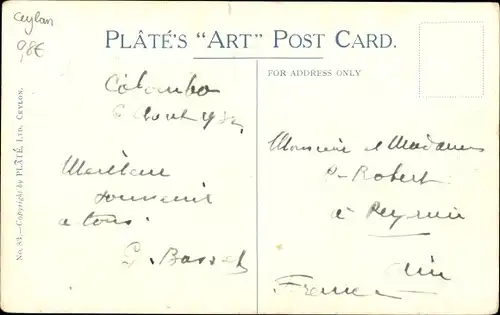 Ceylan
0,8€
PLÂTÉ'S "ART" POST CARD.
FOR ADDRESS ONLY
No. 81.—Copyright by PLÂTÉ Ltd. Ceylon.
Colombo
6 Aout
Meilleur
souvenir
a tous
G. Basset
Monsieur et Madame
Robert
a
Ain
France